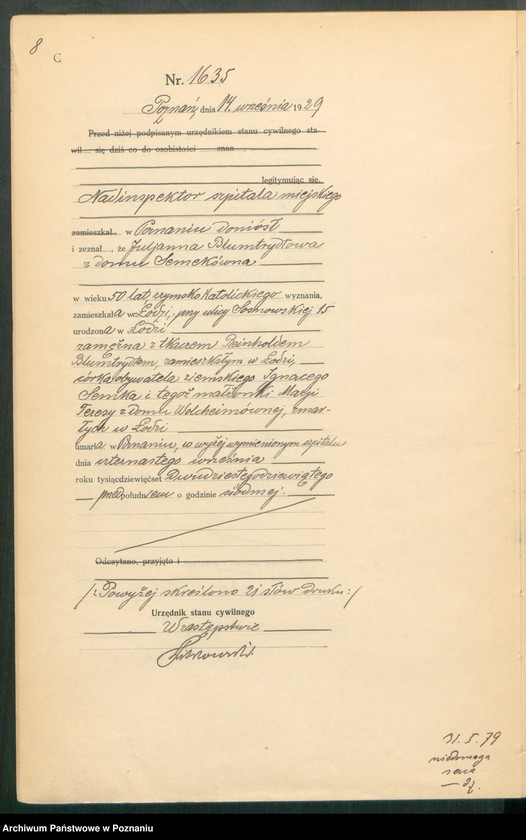 8
C
Nr. 1635
Poznań, dnia 14. września 1929
Przed niżej podpisanym urzędnikiem stanu cywilnego sta-
wił się dziś co do osobistości znan
legitymując się.
Nadinspektor szpitala miejskiego
zamieszkał w Poznaniu doniósł
i zeznał, że Juljanna Blumtrydtowa
z domu Semekówna
w wieku 50 lat, rzymsko katolickiego wyznania,
zamieszkała w Łodzi, przy ulicy Sosnowskiej 15
urodzona w Łodzi
zamężna z tkaczem Reinholdem
Blumtrydtem, zamieszkałym w Łodzi,
córka obywatela ziemskiego Ignacego
Semka i tegoż małżonki Marji
Teresy z domu Welcheimównej, zmar-
łych w Łodzi
umarła w Poznaniu, w wyżej wymienionym szpitalu
dnia czternastego września
roku tysiącdziewięćset Dwudziestegodziewiątego
przed południem o godzinie siódmej.
Odczytano, przyjęto i
/: Powyżej skreślono 21 słów druku :/
Urzędnik stanu cywilnego
W zastępstwie
31. 5. 79
niedomoga
serca
Archiwum Państwowe w Poznaniu